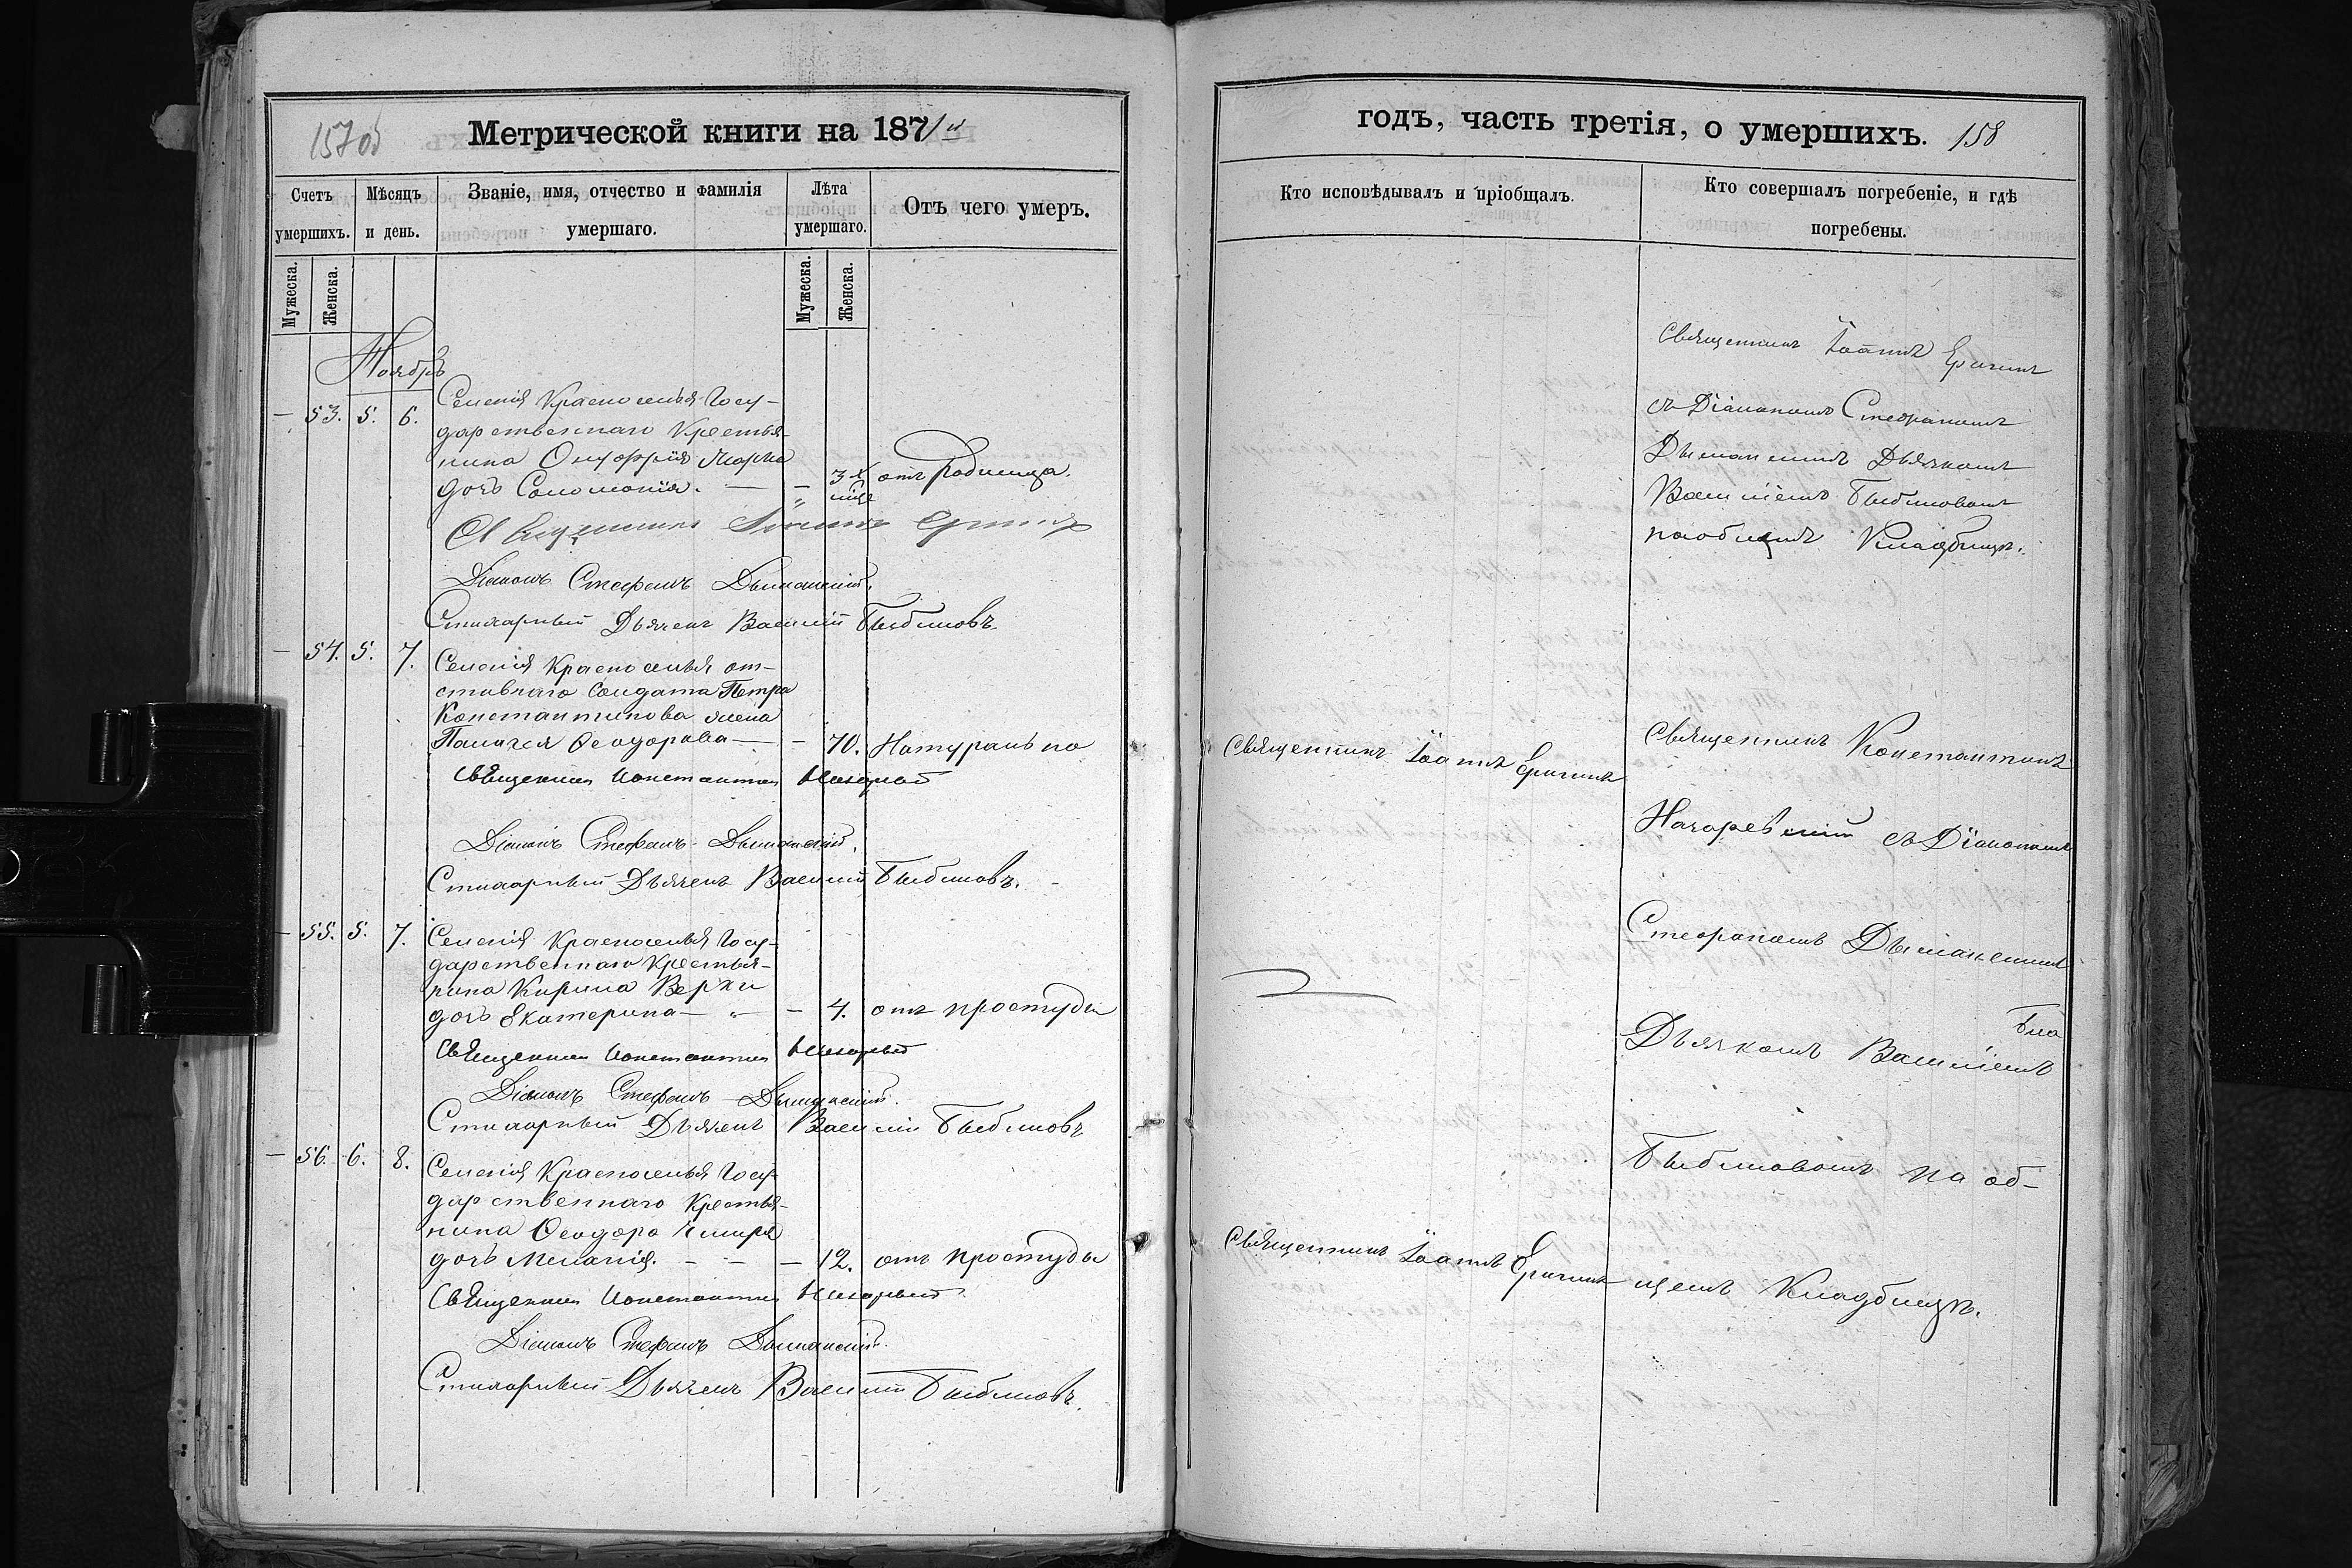 157об
Метрической книги на 1871й
Счетъ умершихъ.
Мѣсяцъ и день.
Званіе, имя, отчество и фамилія умершаго.
Лѣта умершаго.
Отъ чего умеръ.
Мужеска.
Женска.
Мужеска.
Женска.
Ноябрь
— 53. 5. 6. Селенія Красноселья Госу-
дарственнаго Крестья-
нина Онуфрія
дочь Соломонія. — — 3х отъ родимца.
Священникъ Іоаннъ
Діаконъ Стефанъ Дыманскій.
Стихарный Дьячекъ Василій Быбликовъ.
— 54. 5. 7. Селенія Красноселья от-
ставнаго Солдата Петра
Константинова жена
Палагея Ѳеодорова — — 70. Натурально
Священникъ Константинъ
Діаконъ Стефанъ Дыманскій.
Стихарный Дьячекъ Василій Быбликовъ.
— 55. 5. 7. Селенія Красноселья Госу-
дарственнаго Крестья-
нина Кирила Верхи
дочь Екатерина — — 4. отъ простуды
Священникъ Константинъ
Діаконъ Стефанъ Дыманскій.
Стихарный Дьячекъ Василій Быбликовъ
— 56. 6. 8. Селенія Красноселья Госу-
дарственнаго Крестья-
нина Ѳеодора
дочь Меланія. — — — 12. отъ простуды
Священникъ Константинъ
Діаконъ Стефанъ Дыманскій.
Стихарный Дьячекъ Василій Быбликовъ.
годъ, часть третія, о умершихъ. 158
Кто исповѣдывалъ и пріобщалъ.
Кто совершалъ погребеніе, и гдѣ погребены.
Священникъ Іоаннъ
съ Діакономъ Стефаномъ
Дыманскимъ Дьячкомъ
Василіемъ Быбликовымъ
на общемъ Кладбищѣ.
Священникъ Іоаннъ
Священникъ Константинъ
съ Діакономъ
Стефаномъ Дыманскимъ
Дьячкомъ Василіемъ
Быбликовымъ на об-
Священникъ Іоаннъ
щемъ Кладбищѣ.